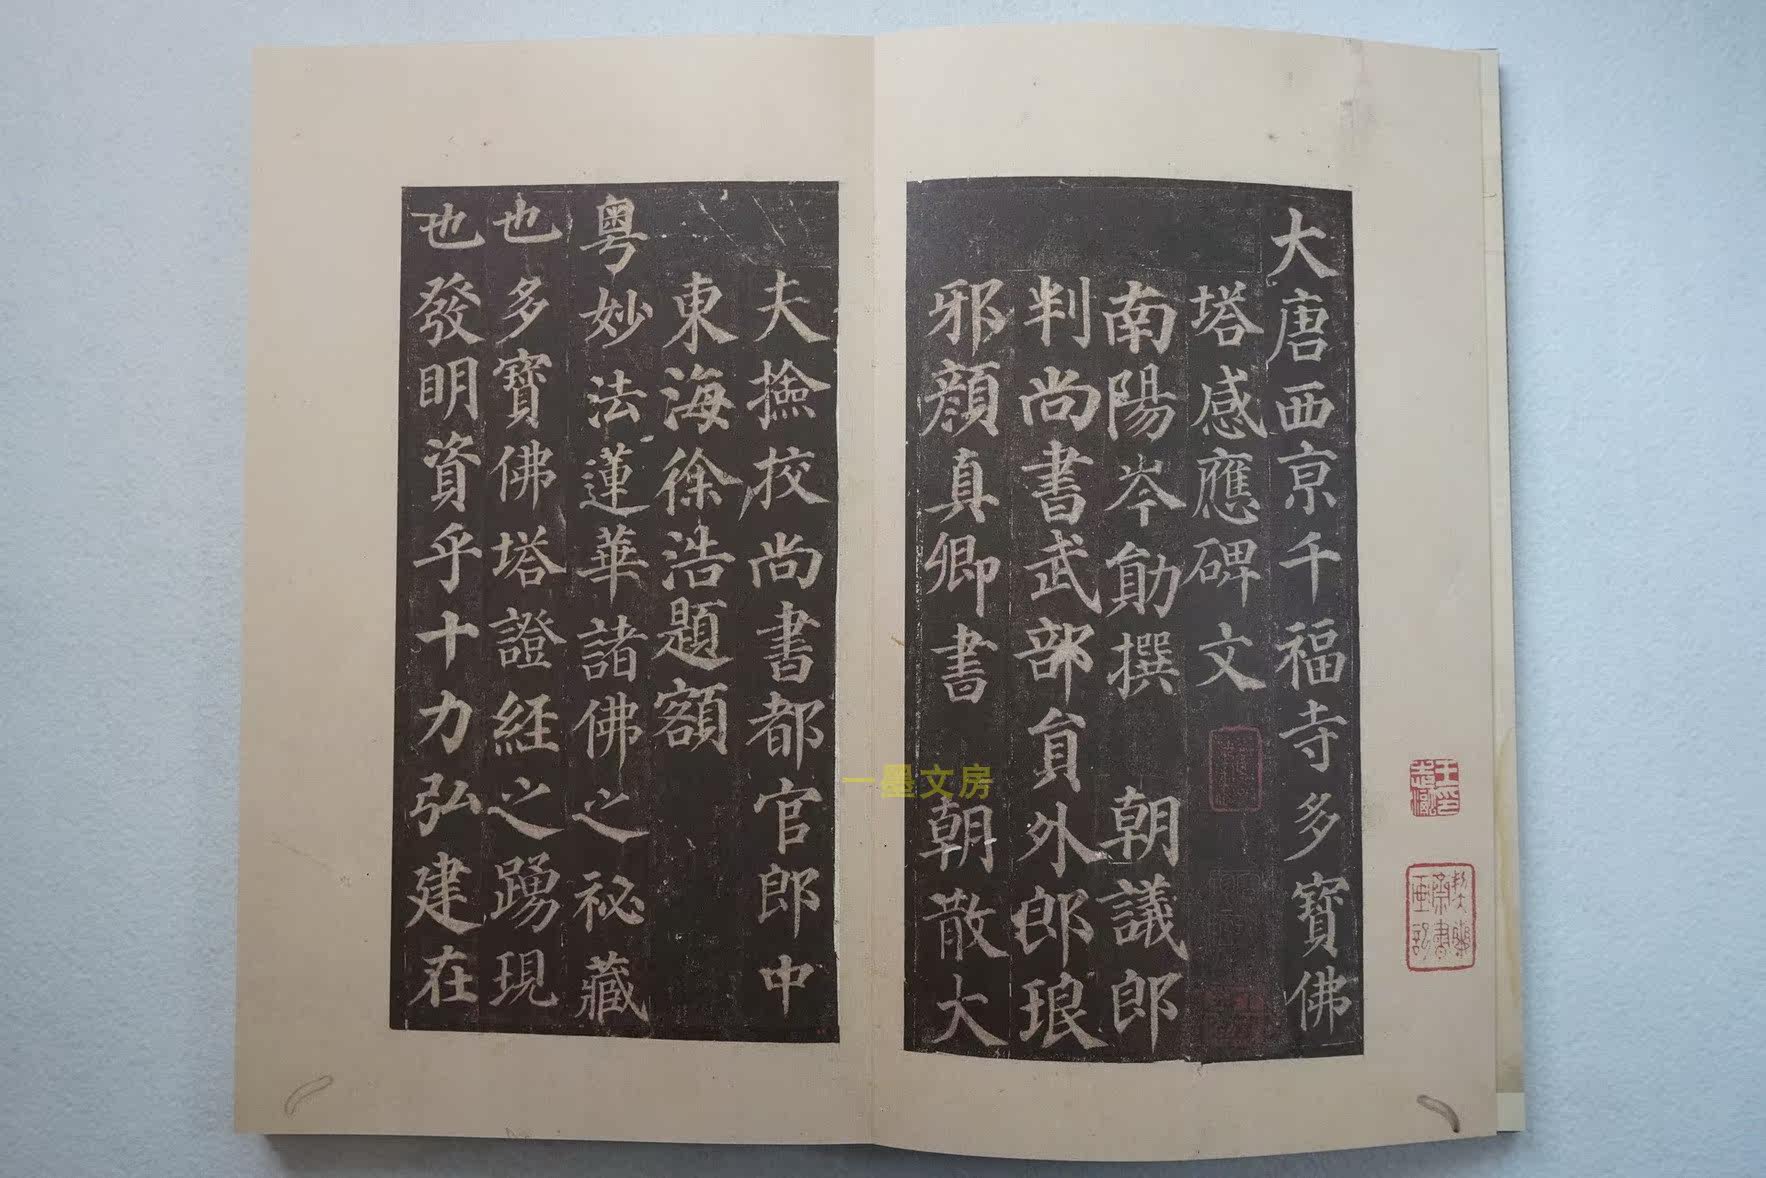 大唐西京千福寺多寶佛
塔感應碑文
南陽岑勛撰 朝議郎
判尚書武部員外郎琅
邪顏真卿書 朝散大
夫撿挍尚書都官郎中
東海徐浩題額
粵妙法蓮華諸佛之祕藏
也多寶佛塔證經之踴現
也發明資乎十力弘建在
一墨文房